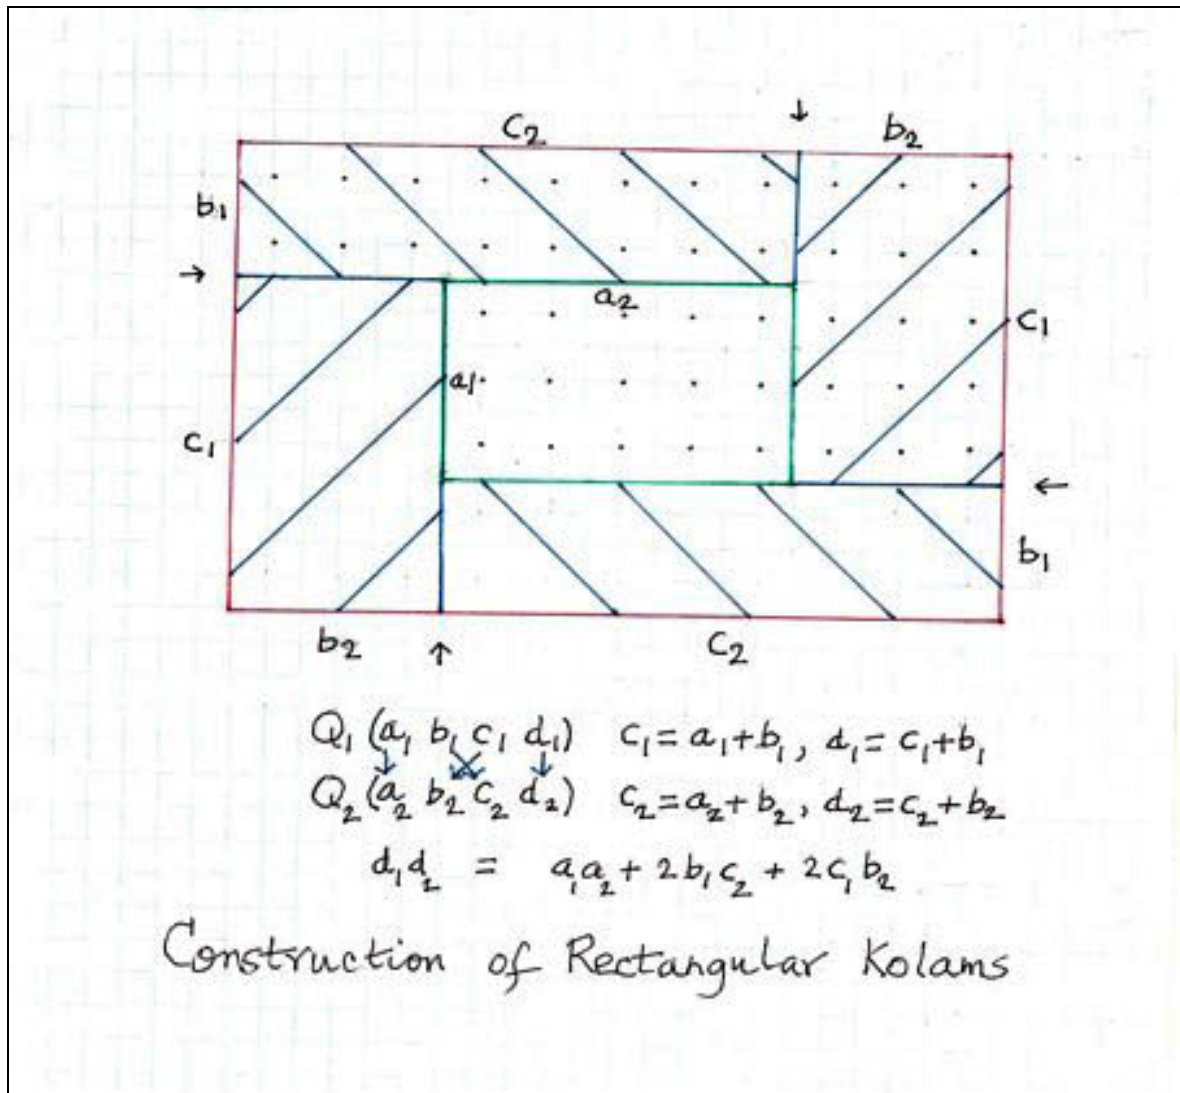 ↓
C₂ b₂
b₁
→
a₂
C₁
a₁
C₁
←
b₁
b₂ ↑ C₂
Q₁ (a₁ b₁ c₁ d₁) c₁ = a₁ + b₁, d₁ = c₁ + b₁
Q₂ (a₂ b₂ c₂ d₂) c₂ = a₂ + b₂, d₂ = c₂ + b₂
d₁d₂ = a₁a₂ + 2b₁c₂ + 2c₁b₂
Construction of Rectangular Kolams